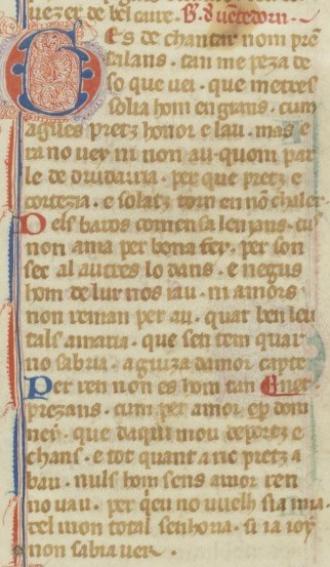 uezer de bel caire. B. d uẽtedorn.
Ges de chantar nom prẽ
talans. tan me peza de
so que uei. que metres
solia hom en grans. cum
agues pretz honor e lau. mas e
ra no uei ni non au. quom par
le de drudaria. per que pretz e
cortezia. e solatz torn en nõ chaler.
Dels baros comensa lenjans. cus
non ama per bona fey. per son
sec al autres lo dans. e negus
hom de lur nos iau. ni amors
non reman per au. quar ben leu
tals amaria. que sen tem quar
no sabria. a guiza damor capte
Per ren non es hom tan ner.
prezans. cum per amor e per dom
ney. que daqui mou deportz e
chans. e tot quant a ric pretz a
bau. nuls hom sens amor ren
no uau. per q̇eu no vuelh sia mia.
del mon tota l senhoria. si ia ioy
non sabia uer.